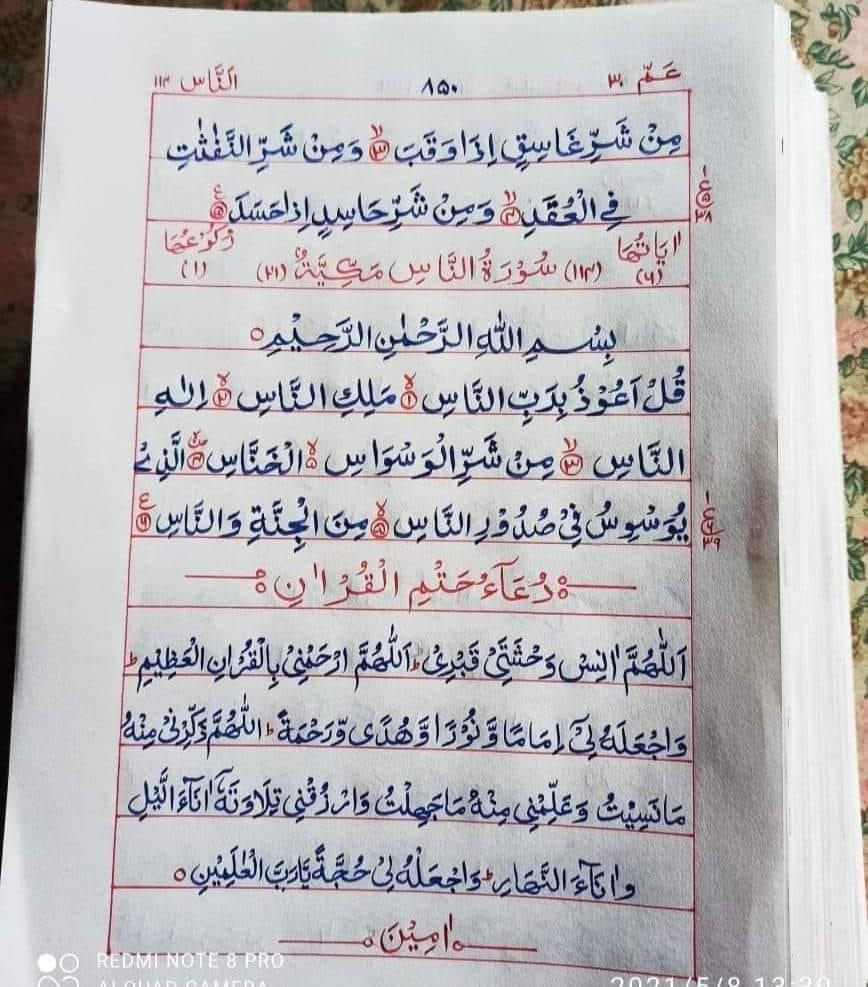 عَمّ ٣٠ ٨٥٠ اَلنَّاس ١١٤
مِنْ شَرِّ غَاسِقٍ اِذَا وَقَبَ ﴿۳﴾ وَمِنْ شَرِّ النَّفّٰثٰتِ
فِی الْعُقَدِ ﴿۴﴾ وَمِنْ شَرِّ حَاسِدٍ اِذَا حَسَدَ ﴿۵﴾
اٰيَاتُهَا (٦) (١١٤) سُوْرَةُ النَّاسِ مَكِّيَّةٌ (٢١) رُكُوْعُهَا (١)
بِسْمِ اللّٰهِ الرَّحْمٰنِ الرَّحِيْمِ ○
قُلْ اَعُوْذُ بِرَبِّ النَّاسِ ﴿۱﴾ مَلِكِ النَّاسِ ﴿۲﴾ اِلٰهِ
النَّاسِ ﴿۳﴾ مِنْ شَرِّ الْوَسْوَاسِ الْخَنَّاسِ ﴿۴﴾ الَّذِیْ
يُوَسْوِسُ فِیْ صُدُوْرِ النَّاسِ ﴿۵﴾ مِنَ الْجِنَّةِ وَالنَّاسِ ﴿۶﴾
دُعَآءُ خَتْمِ الْقُرْاٰنِ
اَللّٰهُمَّ اٰنِسْ وَحْشَتِیْ فِیْ قَبْرِیْ اَللّٰهُمَّ ارْحَمْنِیْ بِالْقُرْاٰنِ الْعَظِيْمِ
وَاجْعَلْهُ لِیْ اِمَامًا وَّنُوْرًا وَّهُدًى وَّرَحْمَةً اَللّٰهُمَّ ذَكِّرْنِیْ مِنْهُ
مَا نَسِيْتُ وَعَلِّمْنِیْ مِنْهُ مَا جَهِلْتُ وَارْزُقْنِیْ تِلَاوَتَهٗ اٰنَآءَ الَّيْلِ
وَاٰنَآءَ النَّهَارِ وَاجْعَلْهُ لِیْ حُجَّةً يَّا رَبَّ الْعٰلَمِيْنَ ○
اٰمِيْنَ
REDMI NOTE 8 PRO
2021/5/8 13:30